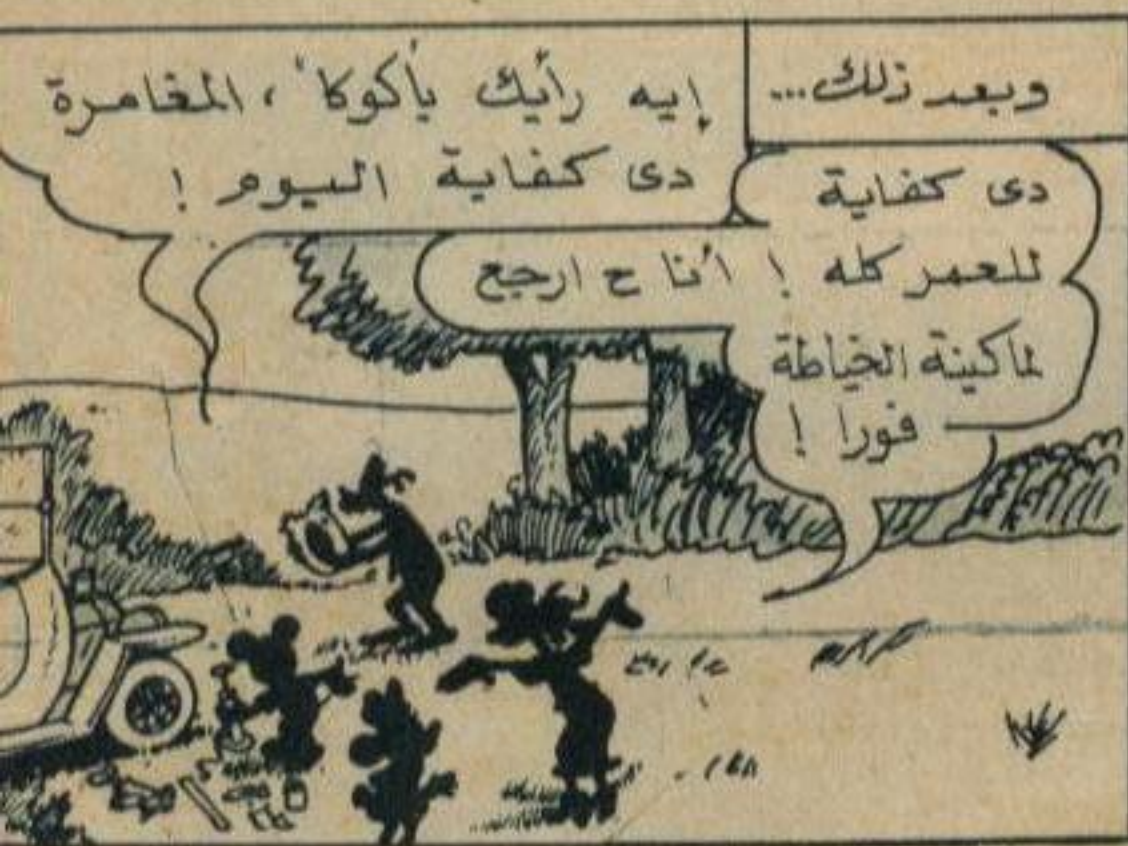 وبعد ذلك...
إيه رأيك يا "كوكا"، المغامرة
دى كفاية اليوم !
دى كفاية
للعمر كله ! أنا ح ارجع
لماكينة الخياطة
فورا !